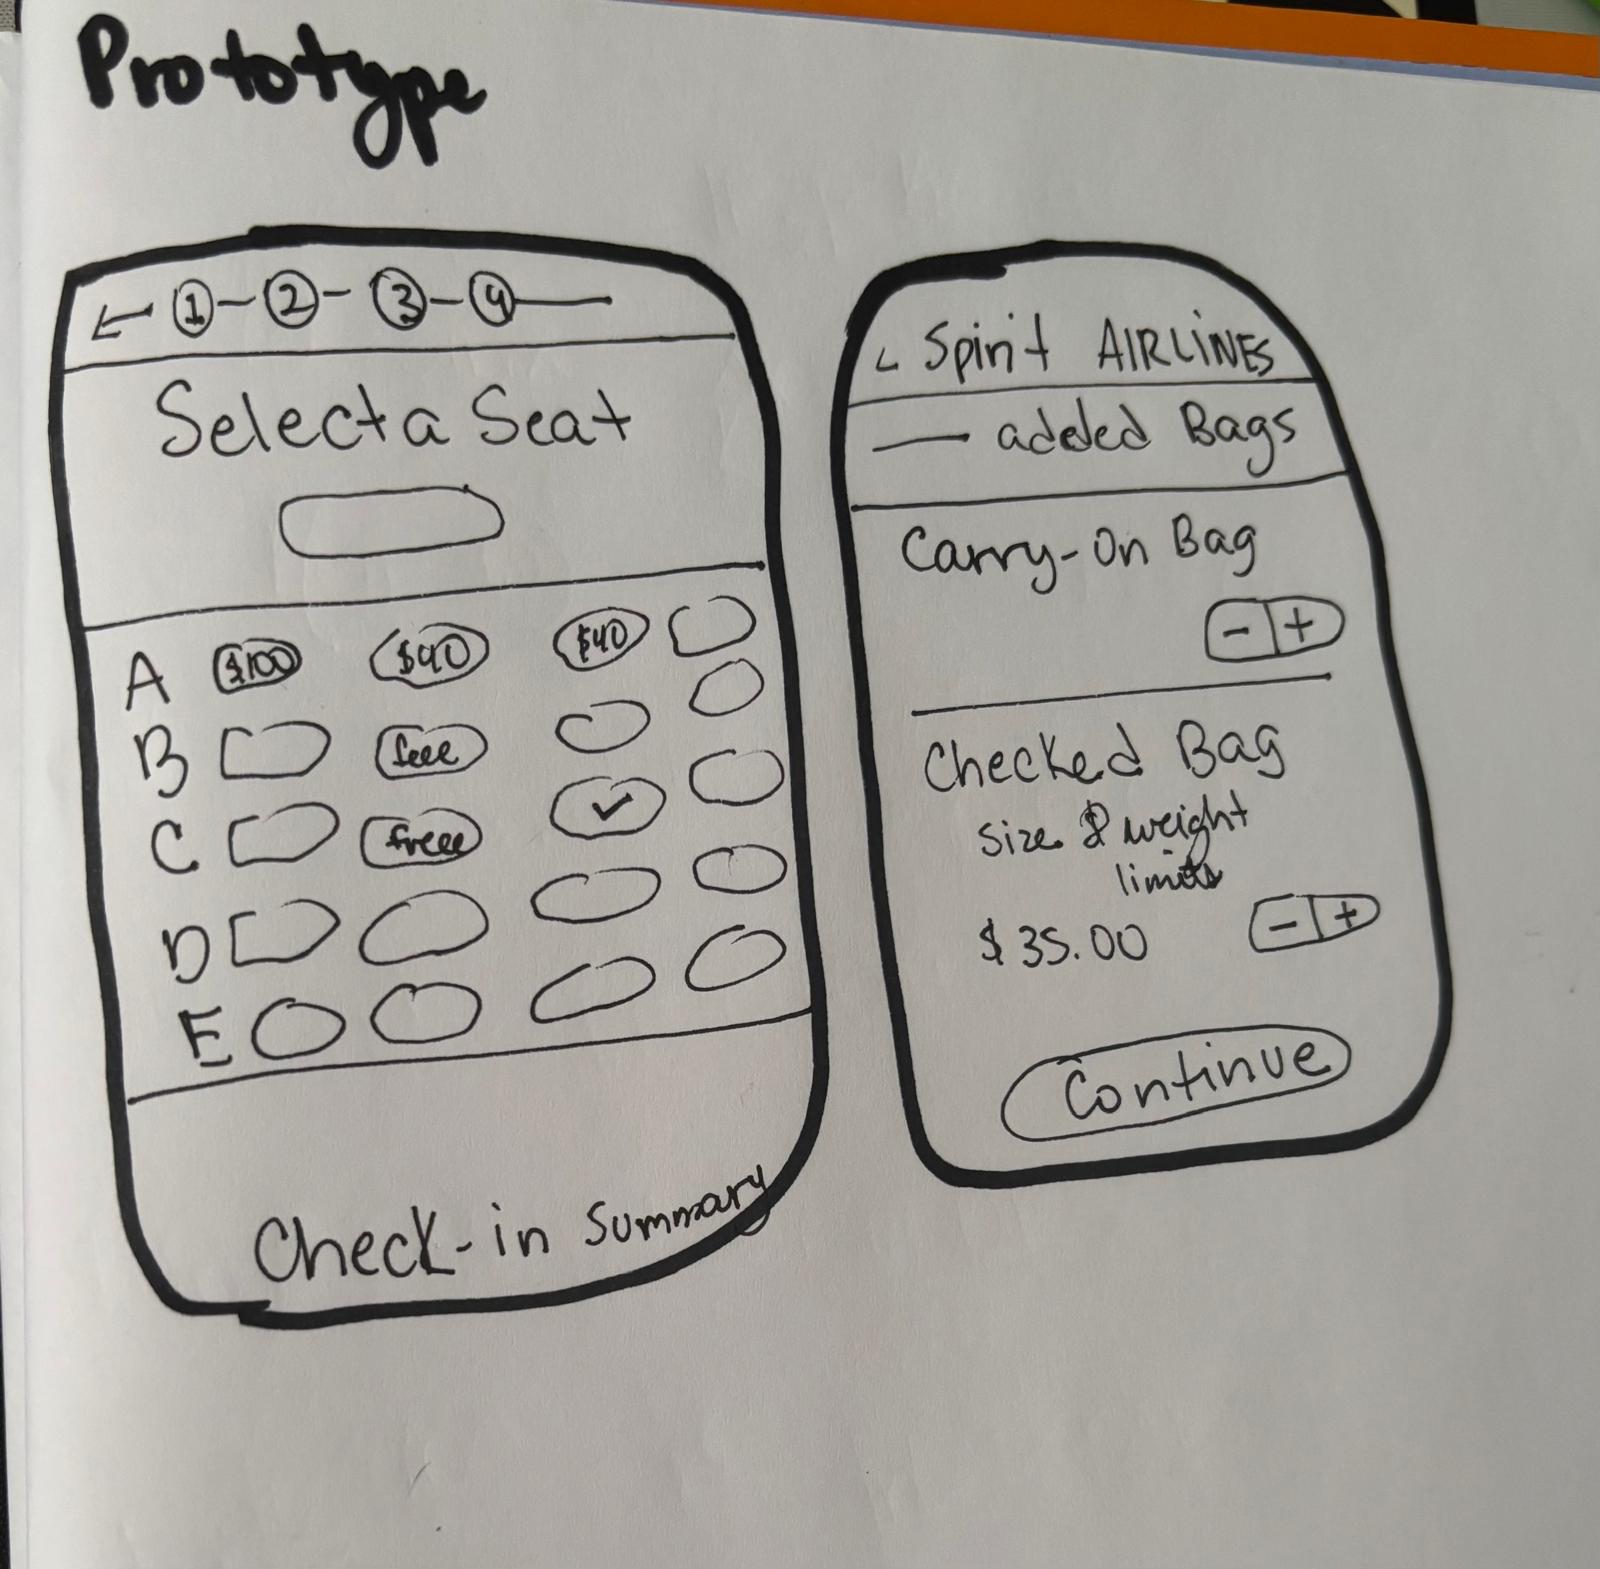 Prototype
← 1 - 2 - 3 - 4
Select a Seat
A $100 $90 $40
B
C freee ✓
D
E
Check-in Summary
Spirit AIRLINES
added Bags
Carry-On Bag
- +
Checked Bag
Size & weight
limits
$35.00 - +
Continue